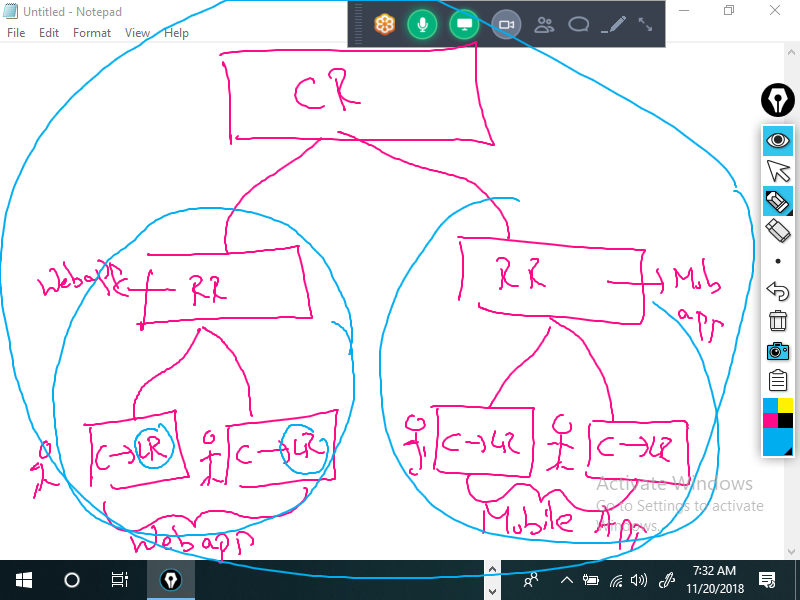 Untitled - Notepad
File Edit Format View Help
CR
Webapp RR
RR Mob app
C→LR C→LR C→LR C→LR
Webapp
Mobile App
Activate Windows
Go to Settings to activate
Windows.
7:32 AM
11/20/2018